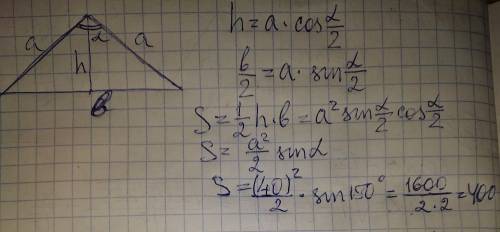 a α a
h
b
h = a · cos α/2
b/2 = a · sin α/2
S = 1/2 h · b = a² sin α/2 cos α/2
S = a²/2 sin α
S = (40)²/2 · sin 150° = 1600/2·2 = 400